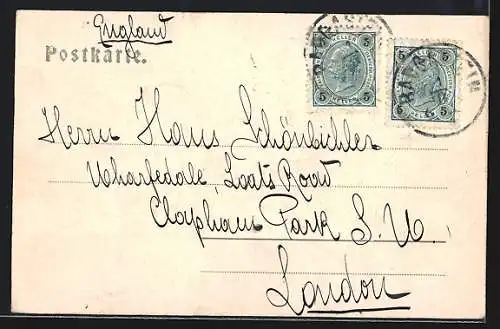 England
Postkarte.
5 5 5 5
Herrn Hans Schönbichler
Wharfedale, Loats Road
Clapham Park S. W.
London